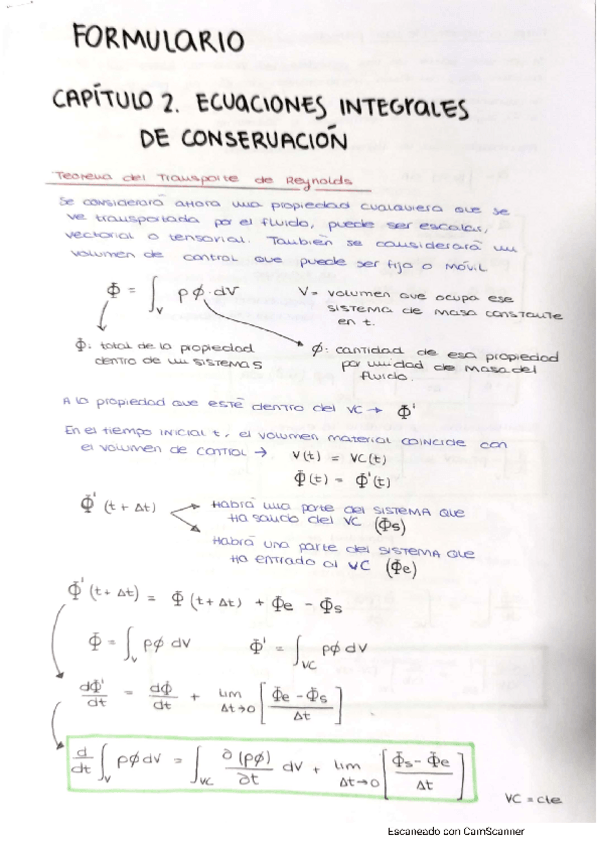 FORMULARIO
CAPÍTULO 2. ECUACIONES INTEGRALES
DE CONSERVACIÓN
Teorema del Transporte de Reynolds
Se considerará ahora una propiedad cualquiera que se
ve transportada por el fluido, puede ser escalar,
vectorial o tensorial. También se considerará un
volumen de control que puede ser fijo o móvil
Φ = ∫_V ρφ·dV
V = volumen que ocupa ese
sistema de masa constante
en t.
Φ: total de la propiedad
dentro de un SISTEMA S
φ: cantidad de esa propiedad
por unidad de masa del
fluido.
A la propiedad que esté dentro del VC → Φ'
En el tiempo inicial t, el volumen material coincide con
el volumen de control → V(t) = VC(t)
Φ(t) = Φ'(t)
Φ' (t + Δt)
Habrá una parte del SISTEMA que
ha salido del VC (Φs)
Habrá una parte del SISTEMA que
ha entrado al VC (Φe)
Φ' (t + Δt) = Φ (t + Δt) + Φe - Φs
Φ = ∫_V ρφ dV Φ' = ∫_VC ρφ dV
dΦ'/dt = dΦ/dt + lim Δt→0 [Φe - Φs / Δt]
d/dt ∫_V ρφ dV = ∫_VC ∂(ρφ)/∂t dV + lim Δt→0 [Φs - Φe / Δt]
VC = cte
Escaneado con CamScanner